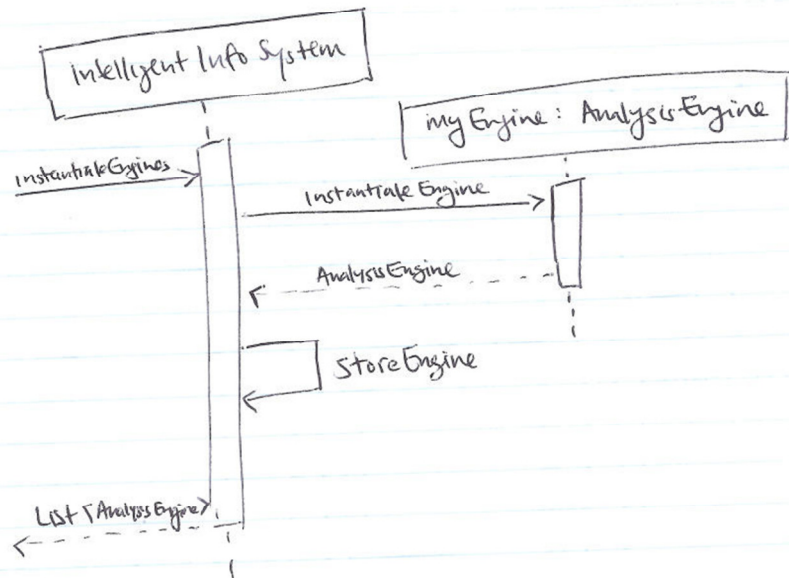 Intelligent Info System
myEngine: AnalysisEngine
InstantiateEngines
Instantiate Engine
AnalysisEngine
StoreEngine
List<AnalysisEngine>